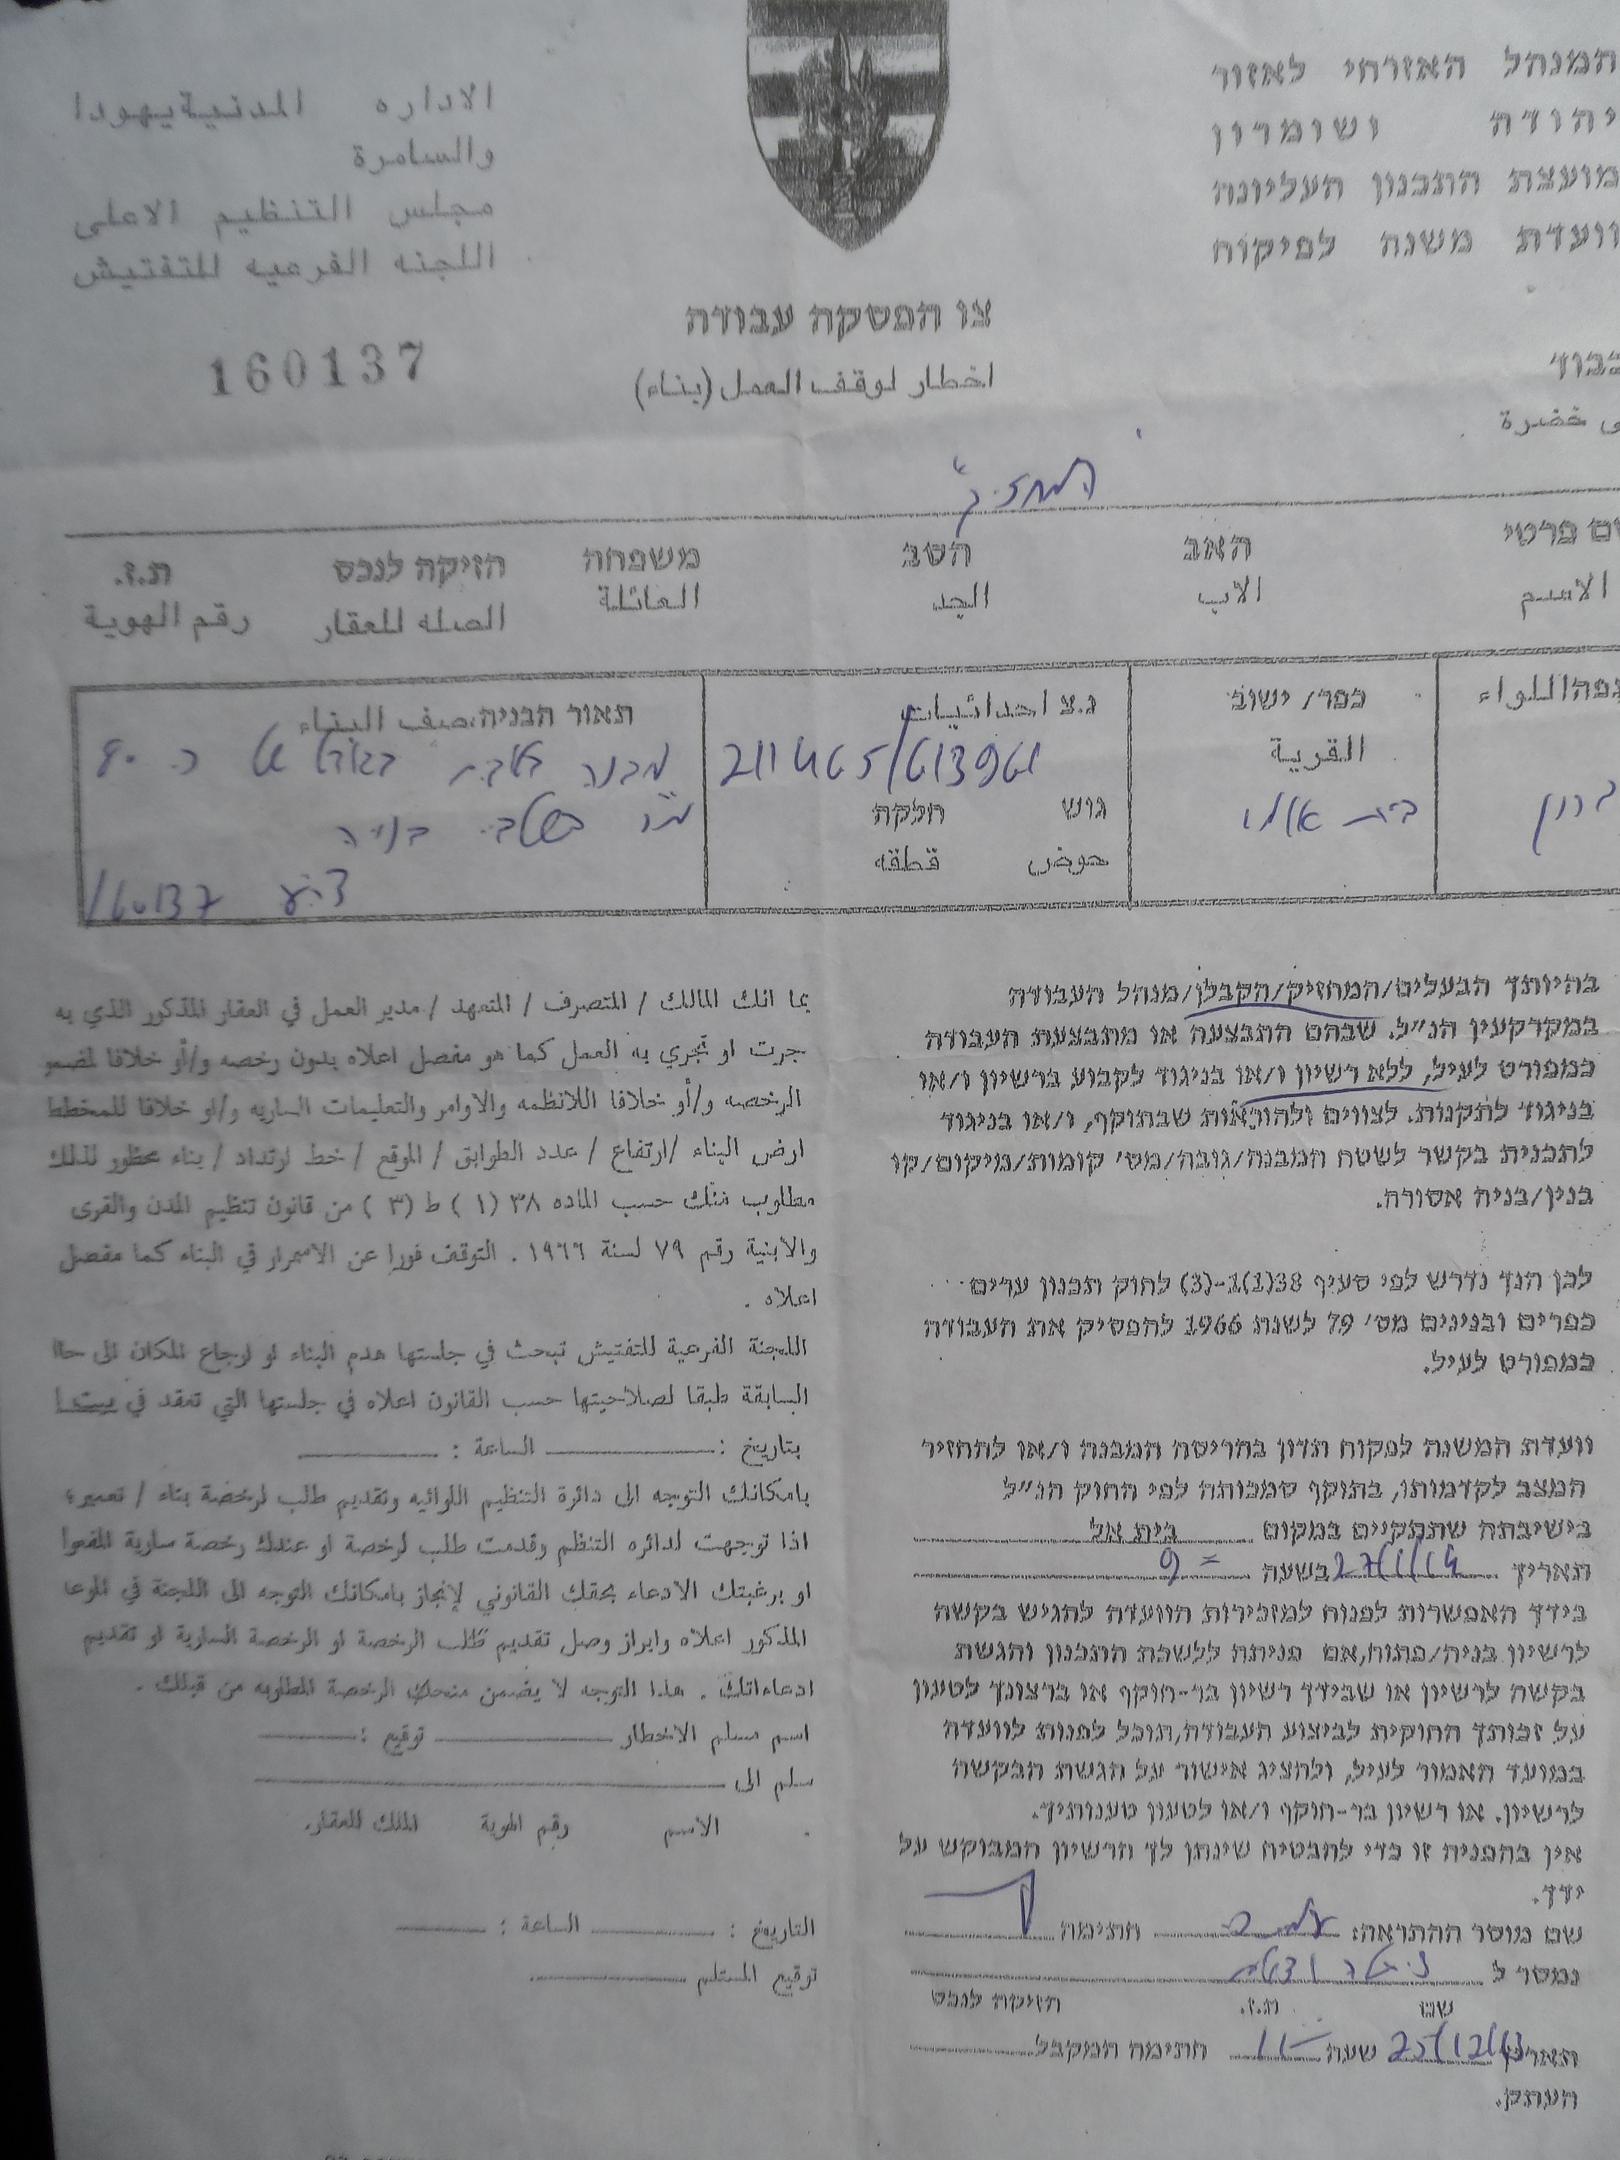 המנהל האזרחי לאזור
יהודה ושומרון
מועצת התכנון העליונה
וועדת משנה לפיקוח
الاداره المدنية يهودا
والسامرة
مجلس التنظيم الاعلى
اللجنه الفرعيه للتفتيش
צו הפסקה עבודה
اخطار لوقف العمل (بناء)
160137
خضرة
המחזיק
פרטי האב הסב משפחה הזיקה לנכס ת.ז.
الاسم الاب الجد العائلة الصله للعقار رقم الهوية
اللواء
כפר/ ישוב
القرية
נ.צ احداثيات
211465/613961
גוש חלקה
حوض قطقه
תאור הבניה، صف البناء
מבנה
80
מ"ר בשלבי בניה
160137
בהיותך הבעלים/המחזיק/הקבלן/מנהל העבודה
במקרקעין הנ״ל. שבהם התבצעה או מתבצעת העבודה
כמפורט לעיל, ללא רשיון ו/או בניגוד לקבוע ברשיון ו/או
בניגוד לתקנות. לצווים ולהוראות שבתוקף, ו/או בניגוד
לתכנית בקשר לשטח המבנה/גובה/מס׳ קומות/מיקום/קו
בנין/בניה אסורה.
לכן הנך נדרש לפי סעיף 38(1)1-(3) לחוק תכנון ערים
כפרים ובנינים מס׳ 79 לשנת 1966 להפסיק את העבודה
כמפורט לעיל.
וועדת המשנה לפקוח תדון בהריסת המבנה ו/או להחזיר
המצב לקדמותו, בתוקף סמכותה לפי החוק הנ״ל
בישיבתה שתתקיים במקום בית אל
תאריך 27/1/14 בשעה 9
בידך האפשרות לפנות למזכירות הוועדה להגיש בקשה
לרשיון בניה/פתוח, אם פנית ללשכת התכנון והגשת
בקשה לרשיון או שבידך רשיון בר-תוקף או ברצונך לטעון
על זכותך החוקית לביצוע העבודה, תוכל לפנות לוועדה
במועד האמור לעיל, ולהציג אישור על הגשת הבקשה
לרשיון. או רשיון בר-תוקף ו/או לטעון טענותיך.
אין בהפניה זו כדי להבטיח שינתן לך הרשיון המבוקש על
ידך.
שם מוסר ההתראה: חתימה
נמסר ל
שם ת.ז. הזיקה לנכס
תאריך 25/12/13 שעה 11 חתימה המקבל
העתק.
بما انك المالك / المتصرف / المتعهد / مدير العمل في العقار المذكور الذي به
جرت او تجري به العمل كما هو مفصل اعلاه بدون رخصه و/أو خلافا لمضمو
الرخصه و/أو خلافا اللانظمه والاوامر والتعليمات الساريه و/او خلافا للمخطط
ارض البناء /ارتفاع / عدد الطوابق / الموقع / خط ارتداد / بناء محظور لذلك
مطلوب منك حسب الماده ٣٨ (١) ط (٣) من قانون تنظيم المدن والقرى
والابنية رقم ٧٩ لسنة ١٩٦٦ . التوقف فورا عن الاستمرار في البناء كما مفصل
اعلاه .
اللجنة الفرعية للتفتيش تبحث في جلستها هدم البناء او ارجاع المكان الى حالا
السابقة طبقا لصلاحيتها حسب القانون اعلاه في جلستها التي تعقد في بيت ا
بتاريخ : الساعة :
بامكانك التوجه الى دائرة التنظيم اللوائيه وتقديم طلب لرخصة بناء / تعمير؛
اذا توجهت لدائره التنظم وقدمت طلب لرخصة او عندك رخصة سارية المفعوا
او برغبتك الادعاء بحقك القانوني لإنجاز بامكانك التوجه الى اللجنة في الموعا
المذكور اعلاه وابراز وصل تقديم طلب الرخصة او الرخصة السارية او تقديم
ادعاءاتك . هذا التوجه لا يضمن منحك الرخصة المطلوبه من قبلك .
اسم مسلم الاخطار توقيع :
سلم الى
الاسم رقم الهوية المالك للعقار.
التاريخ : الساعة :
توقيع المستلم